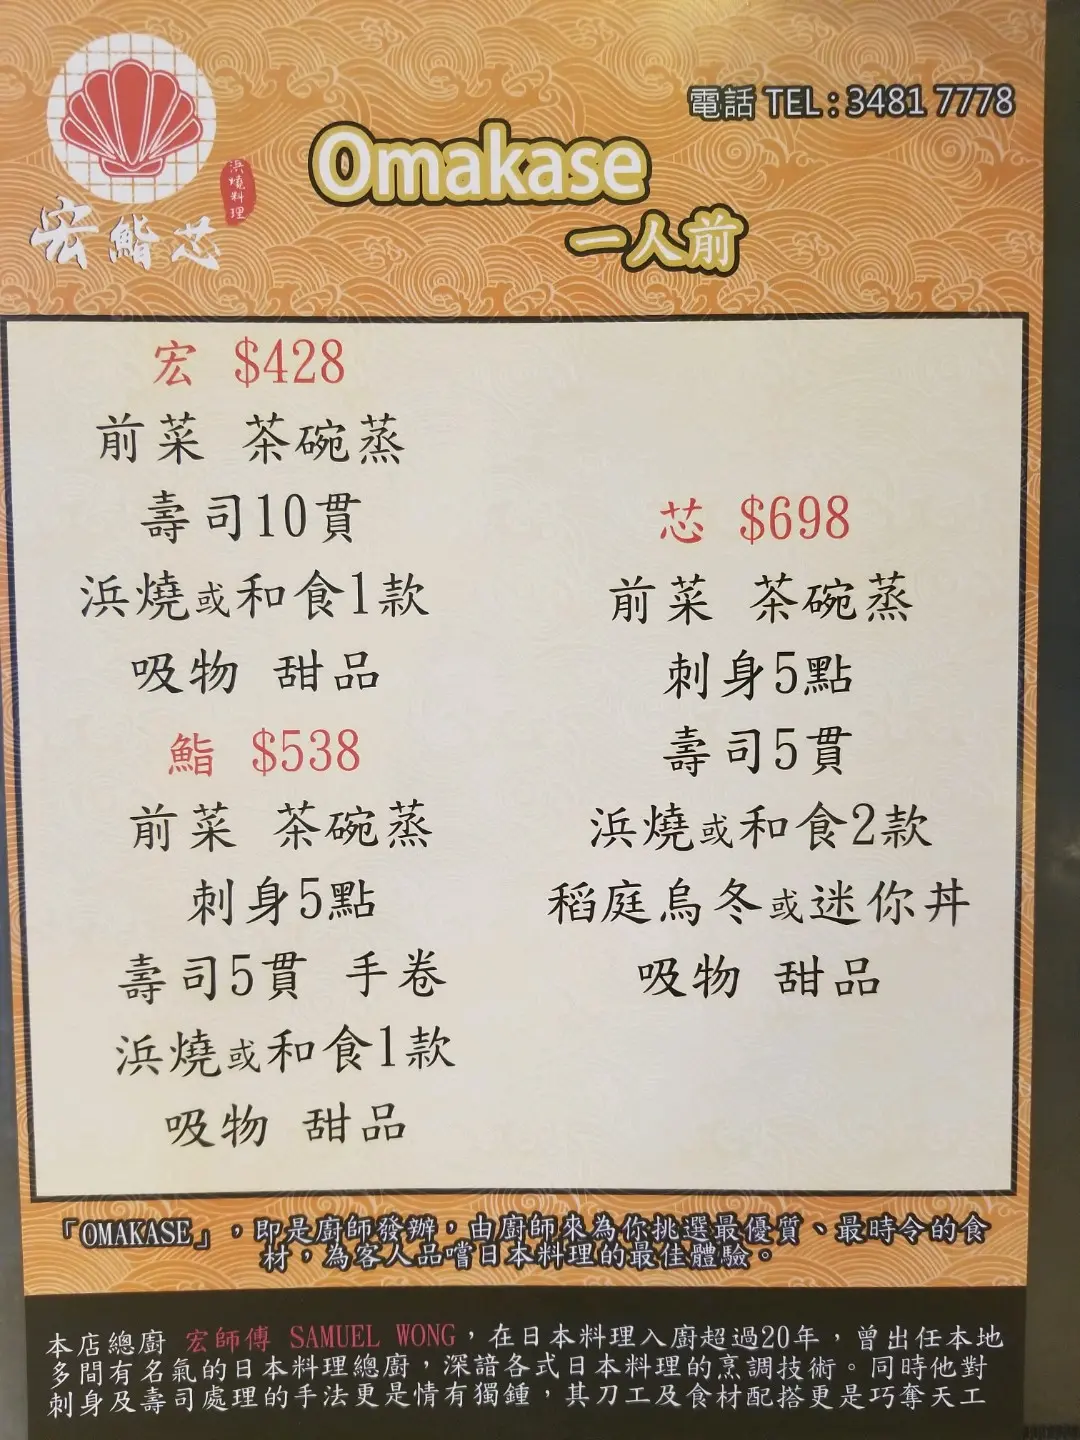 電話 TEL : 3481 7778
浜燒料理
宏鮨芯
Omakase
一人前
宏 $428
前菜 茶碗蒸
壽司10貫
浜燒或和食1款
吸物 甜品
鮨 $538
前菜 茶碗蒸
刺身5點
壽司5貫 手卷
浜燒或和食1款
吸物 甜品
芯 $698
前菜 茶碗蒸
刺身5點
壽司5貫
浜燒或和食2款
稻庭烏冬或迷你丼
吸物 甜品
「OMAKASE」，即是廚師發辦，由廚師來為你挑選最優質、最時令的食
材，為客人品嚐日本料理的最佳體驗。
本店總廚 宏師傅 SAMUEL WONG，在日本料理入廚超過20年，曾出任本地
多間有名氣的日本料理總廚，深諳各式日本料理的烹調技術。同時他對
刺身及壽司處理的手法更是情有獨鍾，其刀工及食材配搭更是巧奪天工